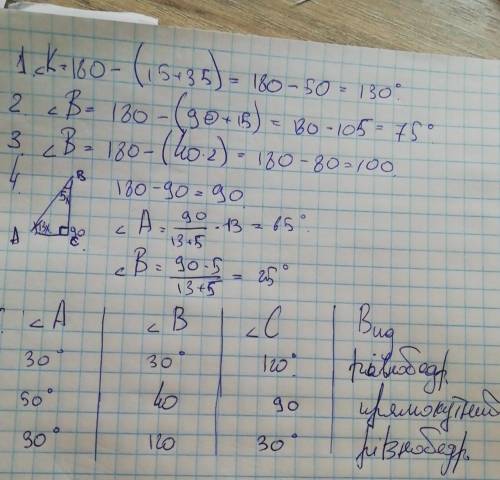 1 ∠K=180-(15+35)=180-50=130°.
2 ∠B=180-(90+15)=180-105=75°.
3 ∠B=180-(40·2)=180-80=100.
4.
B
5x
A 13x 90 C
180-90=90.
∠A=90/13+5·13=65°.
∠B=90·5/13+5=25°
∠A ∠B ∠C Вид
30° 30° 120° рівнобедр.
50° 40 90 прямокутний
30° 120 30° рівнобедр.